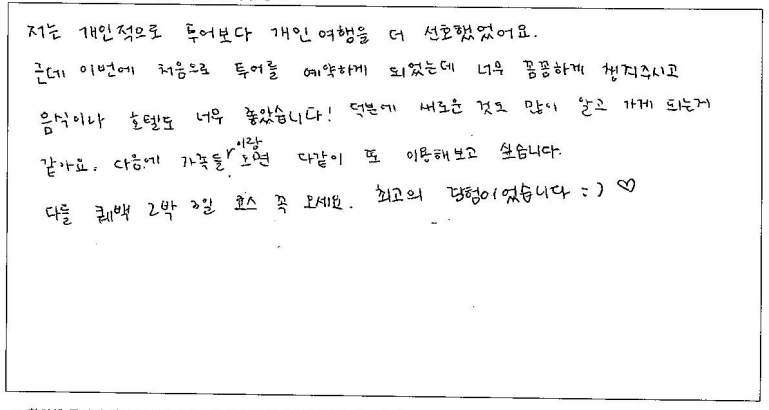 저는 개인적으로 투어보다 개인 여행을 더 선호했었어요.
근데 이번에 처음으로 투어를 예약하게 되었는데 너무 꼼꼼하게 챙겨주시고
음식이나 호텔도 너무 좋았습니다! 덕분에 새로운 것도 많이 알고 가게 되는거
같아요. 다음에 가족들이랑 오면 다같이 또 이용해보고 싶습니다.
다들 퀘백 2박 3일 코스 꼭 오세요. 최고의 경험이었습니다 :) ♡